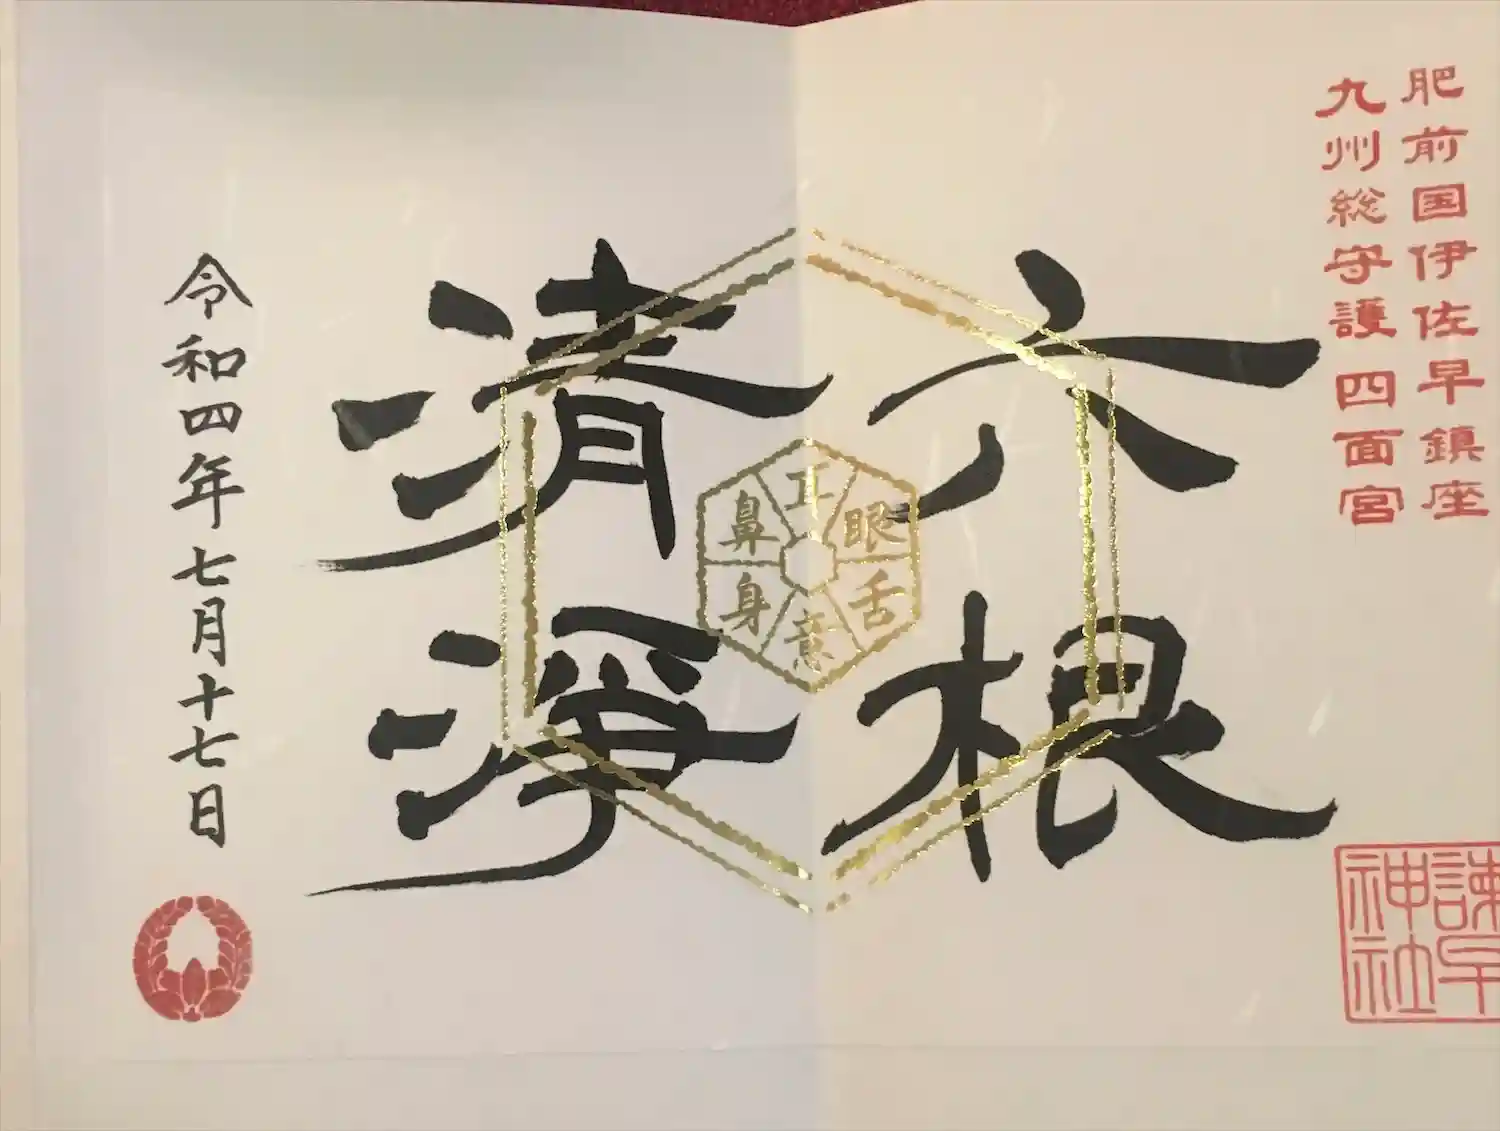 肥前国伊佐早鎮座
九州総守護 四面宮
六根
清浄
眼
耳
鼻
舌
身
意
諫早
神社
令和四年七月十七日